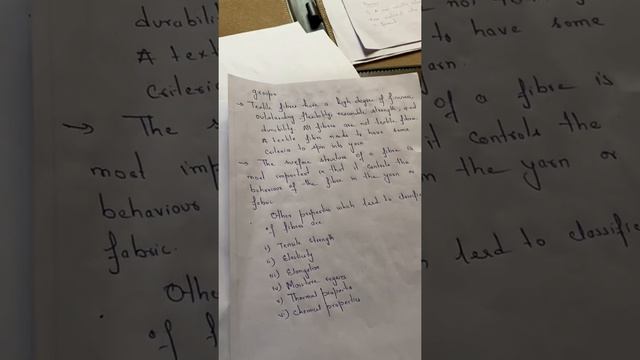 groups.
→ Textile fibres have a high degree of fineness,
outstanding flexibility, reasonable strength, and
durability. All fibres are not textile fibre.
A textile fibre needs to have some
criteria to spin into yarn.
→ The surface structure of a fibre is
most important in that it controls the
behaviour of the fibre in the yarn or
fabric.
Other properties which lead to classific
of fibres are
i) Tensile strength
ii) Elasticity
iii) Elongation
iv) Moisture regain
v) Thermal properties
vi) Chemical properties